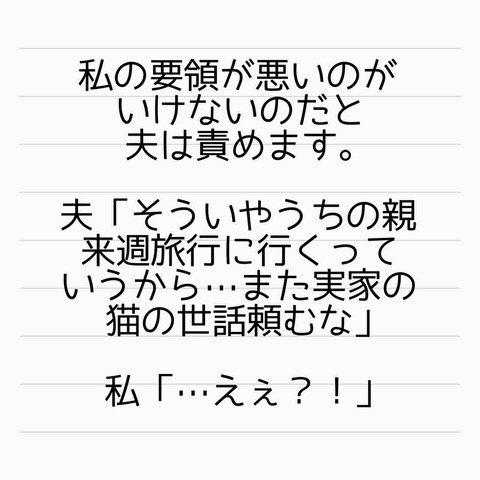 私の要領が悪いのが
いけないのだと
夫は責めます。
夫「そういやうちの親
来週旅行に行くって
いうから…また実家の
猫の世話頼むな」
私「…えぇ？！」